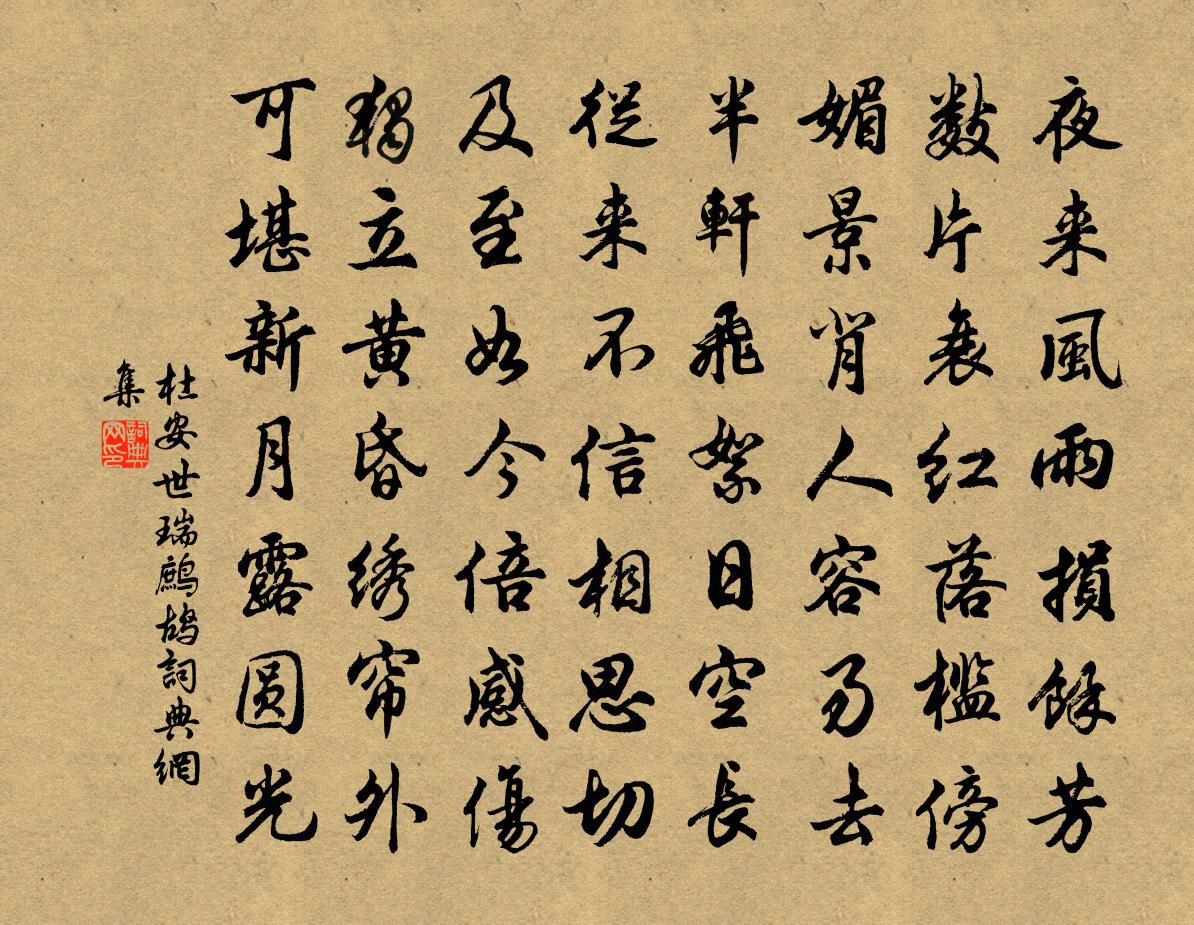 夜来風雨損餘芳
數片衰红落槛傍
媚景背人容易去
半軒飛絮日空長
從来不信相思切
及至如今倍感傷
獨立黄昏绣帘外
可堪新月露圆光
杜安世瑞鷓鴣詞典網
集
詞典网印